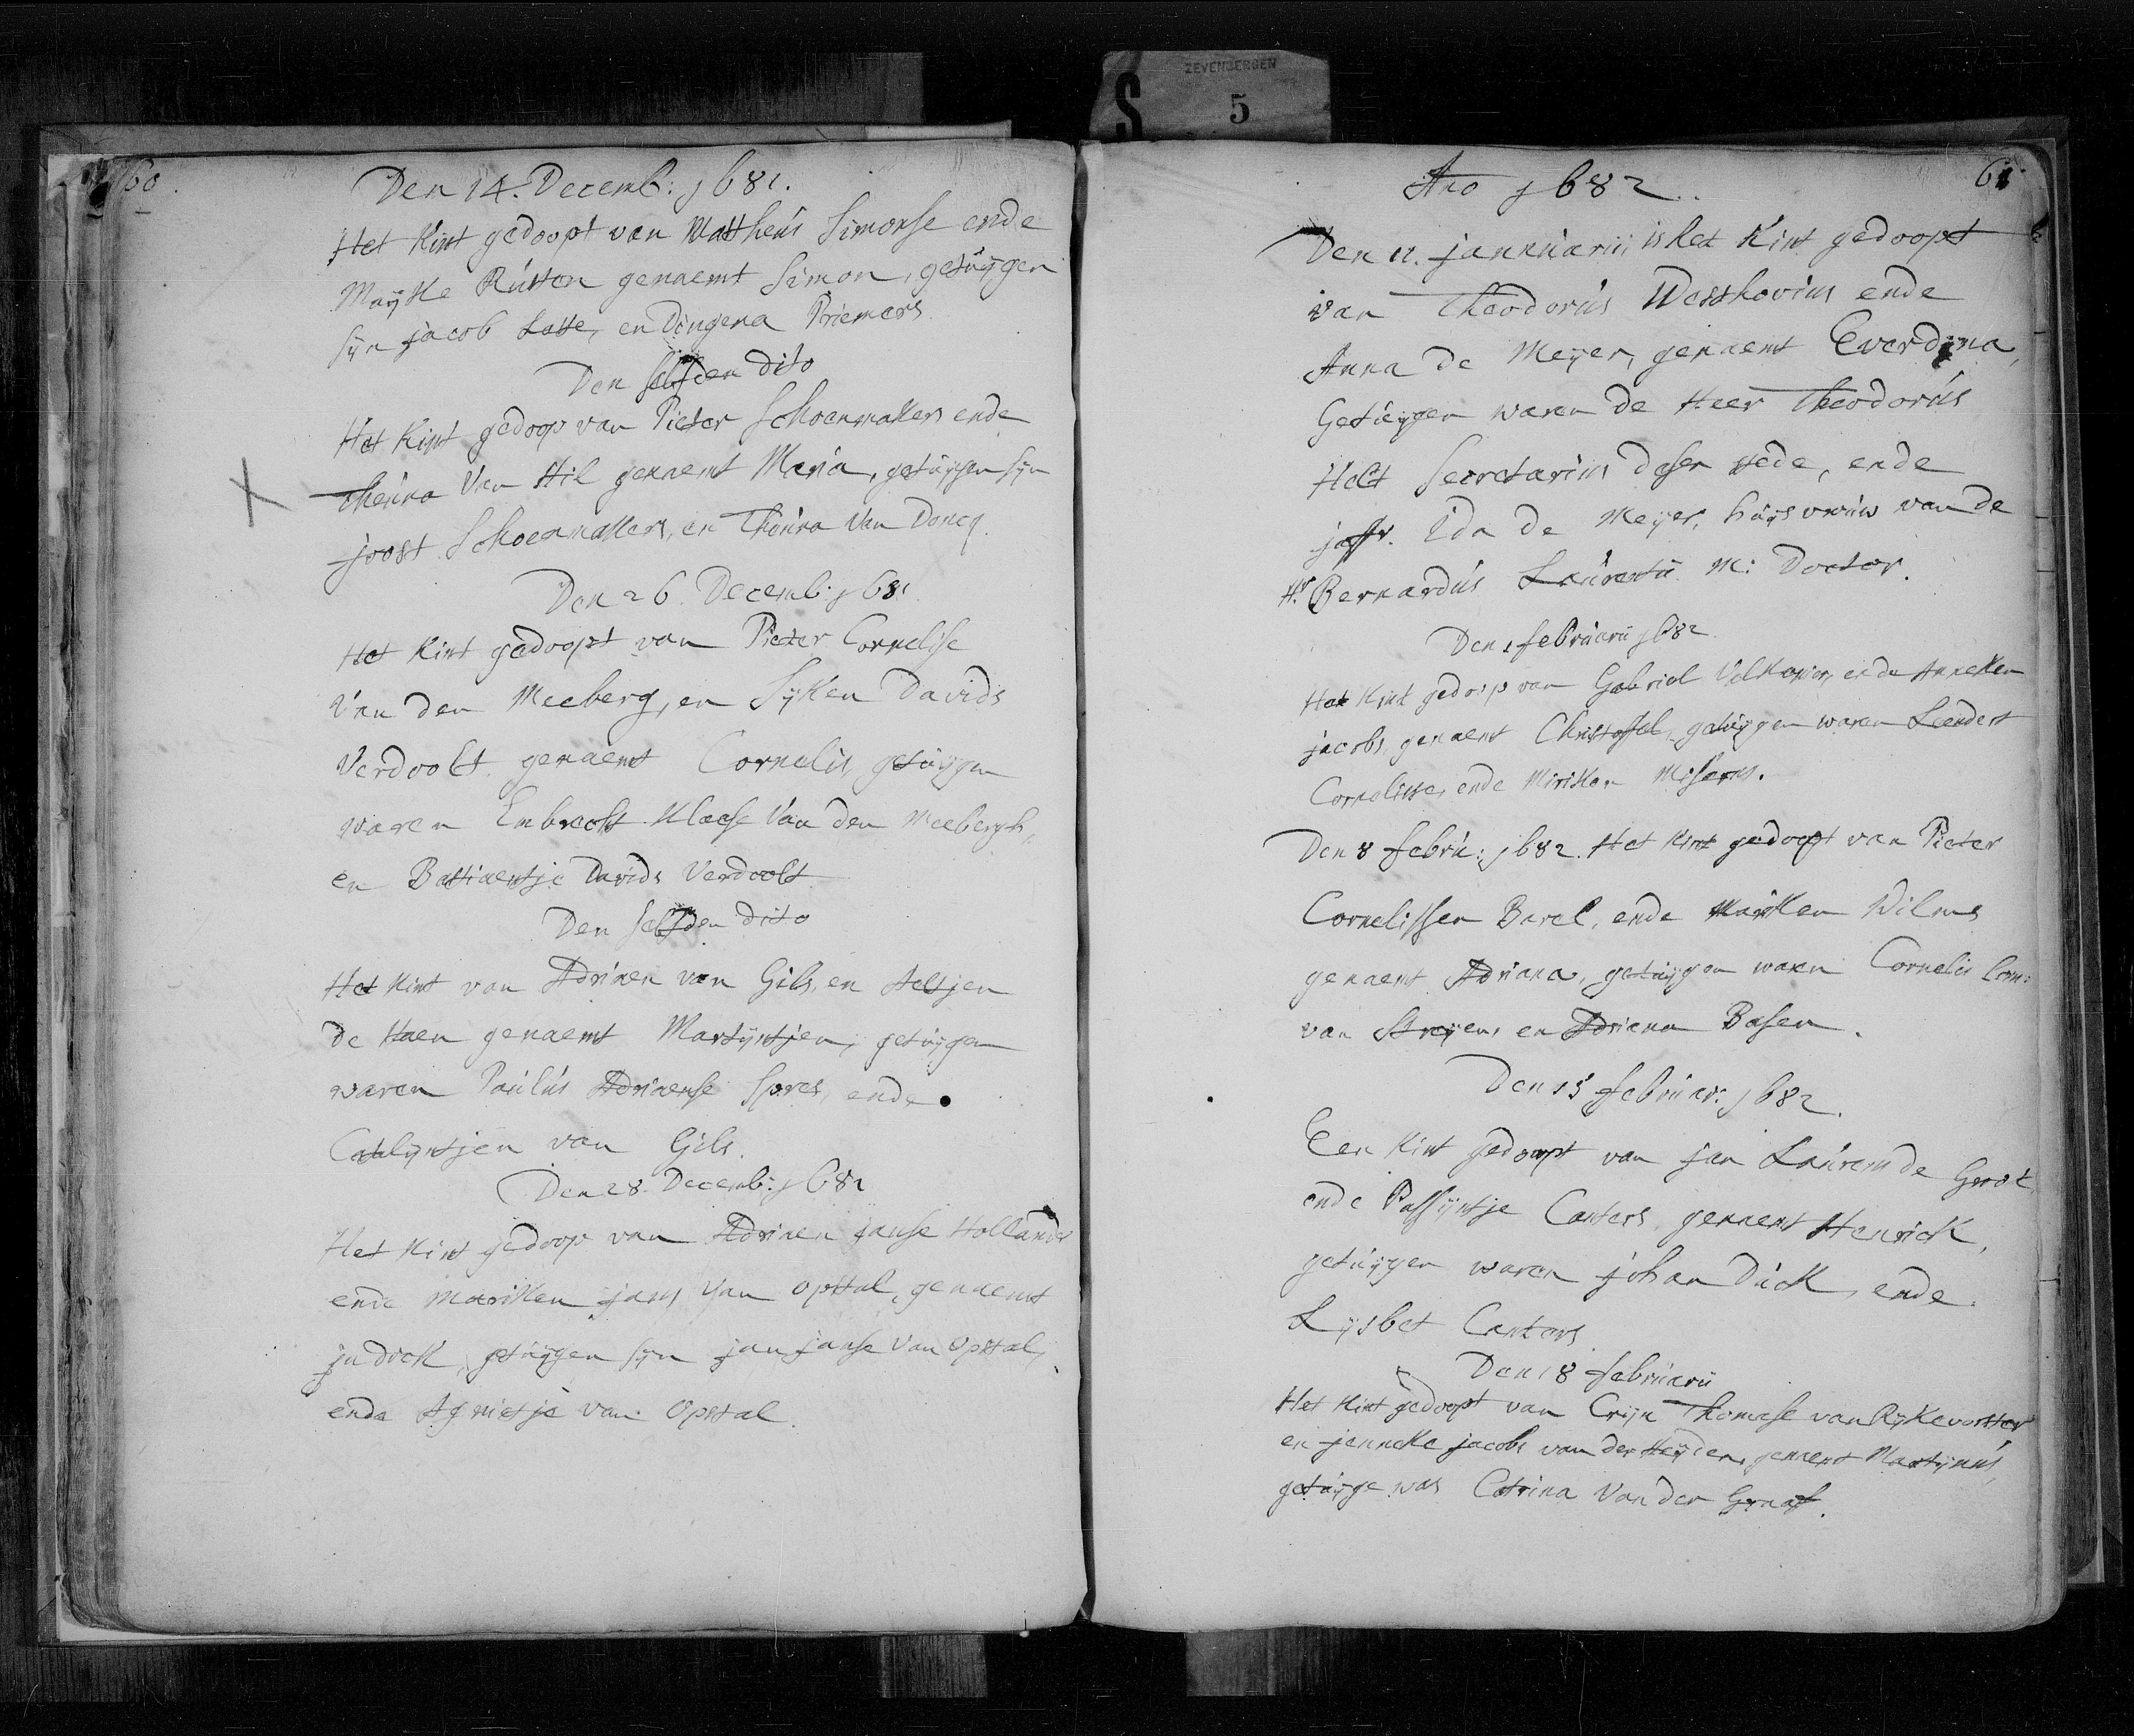 ZEVENBERGEN
S 5
60.
Den 14. Decemb: 1681.
Het Kint gedoopt van Mattheus Simonse ende
Maÿke Rutten genaemt Simon, getuÿgen
sÿn jacob Latte, en Dingena Priemers
Den selfden dito
Het Kint gedoop van Pieter Schoenmakers ende
Van Hil genaemt Maria, getuÿgen sÿn
joost Schoenmakers, en Van Doncq.
Den 26. Decemb: 1681
Het Kint gedoopt van Pieter Cornelisse
Van den Meeberg, en Sÿken Davids
Verdoolt genaemt Cornelis, getuÿgen
waren Embrecht Klaese Van den Meebergh,
en Bastiaentje Davids Verdoolt
Den selfden dito
Het Kint van Adriaen van Gils, en Aeltjen
de Haen genaemt Martÿntjen, getuÿgen
waren Paulus Adriaense Spres, ende
Catlÿntjen van Gils.
Den 28. Decemb: 1681
Het Kint gedoop van Adriaen janse Hollander
ende Mariken jans Van Opstal, genaemt
judick, getuÿgen sÿn jan janse Van Opstal,
ende Agnietje van Opstal.
61.
Ano 1682.
Den 11. jannuarii, is het Kint gedoopt
van Theodorus Westhovius ende
Anna de Meÿer, genaemt Everdina,
Getuÿgen waren de Heer Theodorus
Holt Secretarius deser stede, ende
joffr. Ida de Meÿer, huÿsvrouw van de
Hr. Bernardus Laurentii M: Doctor.
Den 1 februarii 1682
Het Kint gedoop van Gabriel ende Anneken
jacobs, genaemt Christoffel, getuÿgen waren Leendert
Cornelisse, ende Miriken
Den 8 febru: 1682. Het Kint gedoopt van Pieter
Cornelissen Barel, ende Mariken Wilms
genaemt Adriana, getuÿgen waren Cornelis Corn:
van Strÿen, en Adriana Basen.
Den 15 februar: 1682.
Een Kint gedoopt van jan Laurens de Groot
ende Passÿntje Canters, genaemt Henrick,
getuÿgen waren johan Dick, ende
Lÿsbet Canters
Den 18 februarii
Het Kint gedoopt van Crijn Thomese van Rÿkevorster
en jenneke jacobs van der Heÿden, genaemt Martÿnus,
getuÿge was Catrina Van der Graaf.